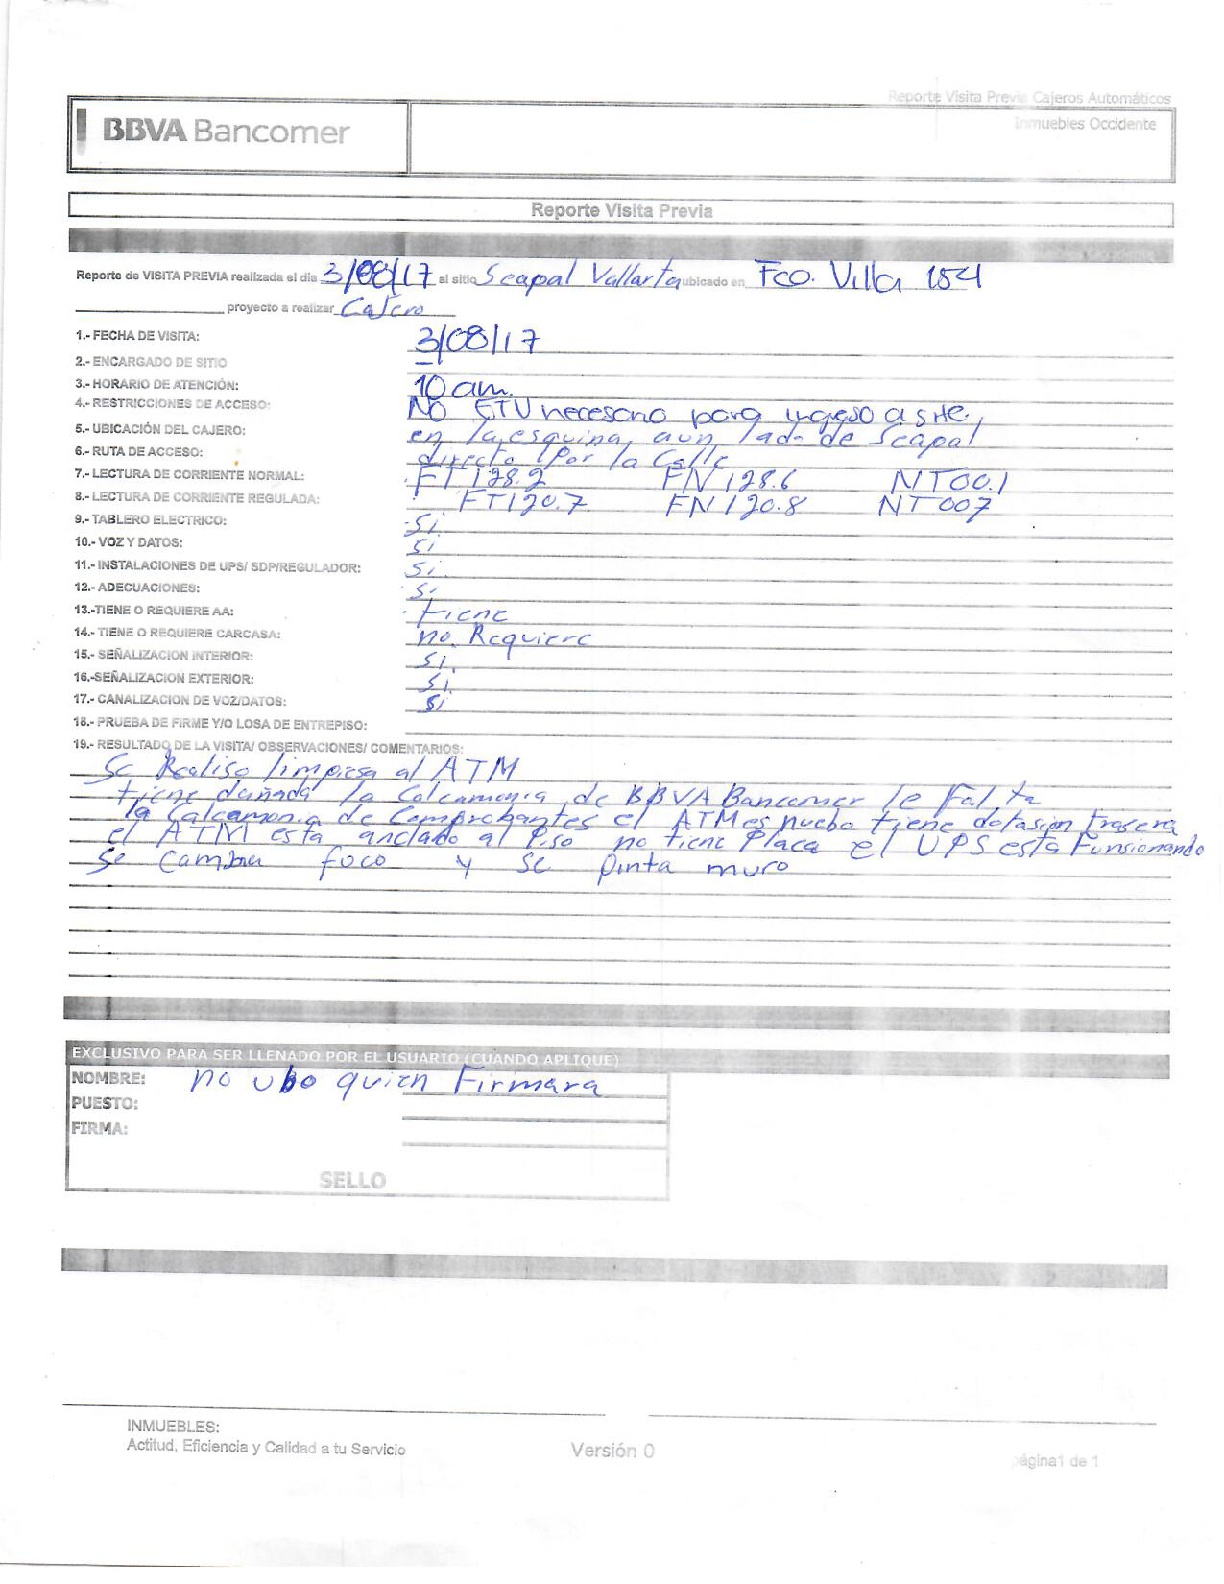 Reporte Visita Previa Cajeros Automáticos
BBVA Bancomer
Inmuebles Occidente
Reporte Visita Previa
Reporte de VISITA PREVIA realizada el dia 3/08/17 al sitio Seapal Vallarta ubicado en Fco. Villa 154
proyecto a realizar Cajero
1.- FECHA DE VISITA: 3/08/17
2.- ENCARGADO DE SITIO
3.- HORARIO DE ATENCIÓN: 10 am.
4.- RESTRICCIONES DE ACCESO: No ETV necesario para ingreso a site,
5.- UBICACIÓN DEL CAJERO: en la esquina, aun lado de Seapal
6.- RUTA DE ACCESO: directo por la Calle
7.- LECTURA DE CORRIENTE NORMAL: FT 128.2 FN 128.6 NT00.1
8.- LECTURA DE CORRIENTE REGULADA: FT120.7 FN 120.8 NT 007
9.- TABLERO ELECTRICO: Si
10.- VOZ Y DATOS: Si
11.- INSTALACIONES DE UPS/ SDP/REGULADOR: Si.
12.- ADECUACIONES: Si
13.-TIENE O REQUIERE AA: tiene
14.- TIENE O REQUIERE CARCASA: no. Requiere
15.- SEÑALIZACION INTERIOR: Si.
16.-SEÑALIZACION EXTERIOR: Si.
17.- CANALIZACION DE VOZ/DATOS: Si
18.- PRUEBA DE FIRME Y/O LOSA DE ENTREPISO:
19.- RESULTADO DE LA VISITA/ OBSERVACIONES/ COMENTARIOS:
Se Realiso limpiesa al ATM
tiene dañada la Calcamonia de BBVA Bancomer le Falta
la Calcamonia de Comprobantes el ATM es nuebo tiene dotasion trasera
el ATM esta anclado al Piso no tiene Placa el UPS esta Funsionando
se Cambia foco y se pinta muro
EXCLUSIVO PARA SER LLENADO POR EL USUARIO (CUANDO APLIQUE)
NOMBRE: no ubo quien Firmara
PUESTO:
FIRMA:
SELLO
INMUEBLES:
Actitud, Eficiencia y Calidad a tu Servicio
Versión 0
página1 de 1